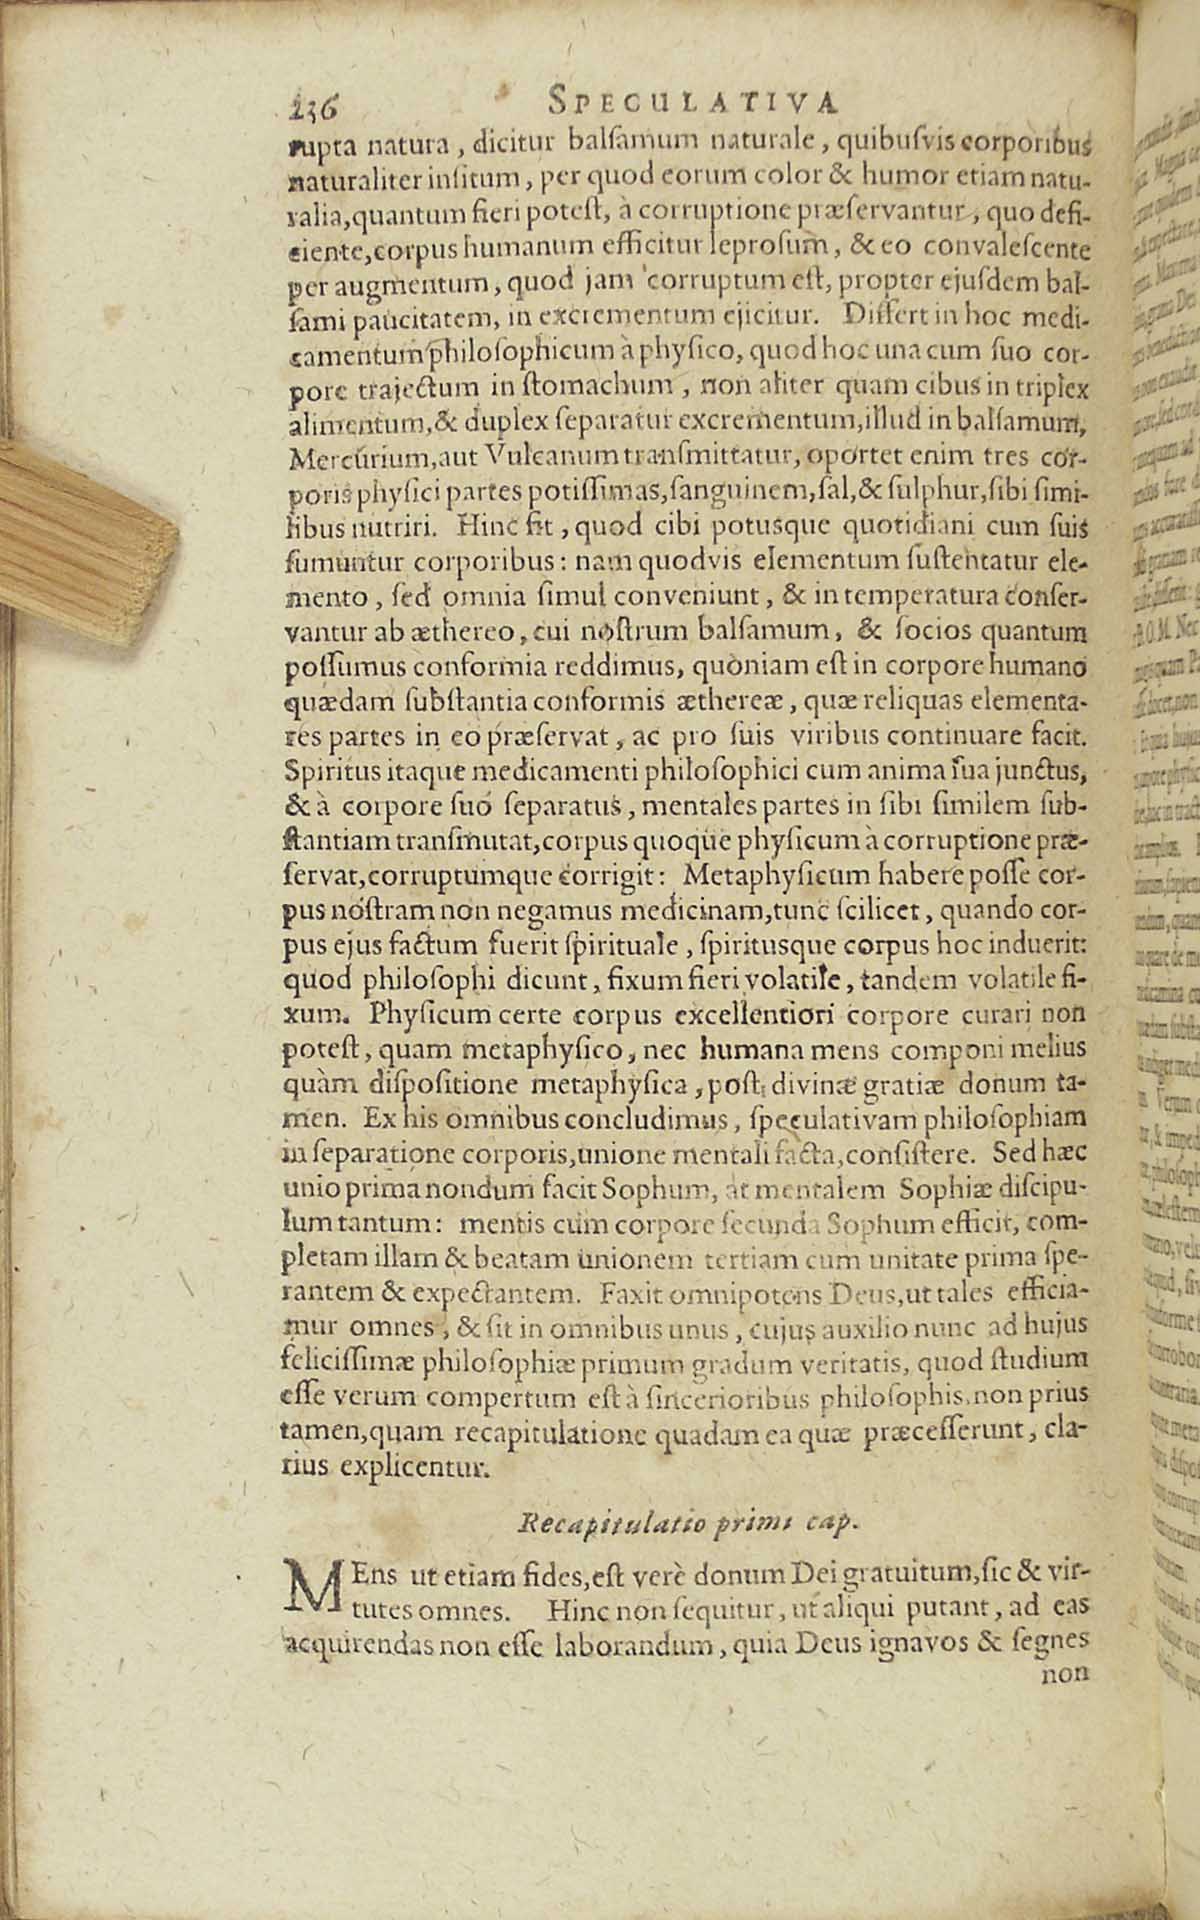 236 SPECULATIVA
rupta natura, dicitur balſamum naturale, quibuſvis corporibus
naturaliter inſitum, per quod eorum color & humor etiam natu-
ralia, quantum fieri poteſt, à corruptione præſervantur, quo defi-
ciente, corpus humanum efficitur leproſum, & eo convaleſcente
per augmentum, quod jam corruptum eſt, propter ejuſdem bal-
ſami paucitatem, in excrementum ejicitur. Differt in hoc medi-
camentum philoſophicum à phyſico, quod hoc una cum ſuo cor-
pore trajectum in ſtomachum, non aliter quam cibus in triplex
alimentum, & duplex ſeparatur excrementum, illud in balſamum,
Mercurium, aut Vulcanum tranſmittatur, oportet enim tres cor-
poris phyſici partes potiſſimas, ſanguinem, ſal, & ſulphur, ſibi ſimi-
libus nutriri. Hinc fit, quod cibi potusque quotidiani cum ſuis
ſumuntur corporibus: nam quodvis elementum ſuſtentatur ele-
mento, ſed omnia ſimul conveniunt, & in temperatura conſer-
vantur ab æthereo, cui noſtrum balſamum, & ſocios quantum
poſſumus conformia reddimus, quoniam eſt in corpore humano
quædam ſubſtantia conformis æthereæ, quæ reliquas elementa-
res partes in eo præſervat, ac pro ſuis viribus continuare facit.
Spiritus itaque medicamenti philoſophici cum anima ſua junctus,
& à corpore ſuo ſeparatus, mentales partes in ſibi ſimilem ſub-
ſtantiam tranſmutat, corpus quoque phyſicum à corruptione præ-
ſervat, corruptumque corrigit: Metaphyſicum habere poſſe cor-
pus noſtram non negamus medicinam, tunc ſcilicet, quando cor-
pus ejus factum fuerit ſpirituale, ſpiritusque corpus hoc induerit:
quod philoſophi dicunt, fixum fieri volatile, tandem volatile fi-
xum. Phyſicum certe corpus excellentiori corpore curari non
poteſt, quam metaphyſico, nec humana mens componi melius
quàm diſpoſitione metaphyſica, poſt divinæ gratiæ donum ta-
men. Ex his omnibus concludimus, ſpeculativam philoſophiam
in ſeparatione corporis, unione mentali facta, conſiſtere. Sed hæc
unio prima nondum facit Sophum, at mentalem Sophiæ diſcipu-
lum tantum: mentis cum corpore ſecunda Sophum efficit, com-
pletam illam & beatam unionem tertiam cum unitate prima ſpe-
rantem & expectantem. Faxit omnipotens Deus, ut tales efficia-
mur omnes, & ſit in omnibus unus, cujus auxilio nunc ad hujus
feliciſſimæ philoſophiæ primum gradum veritatis, quod ſtudium
eſſe verum compertum eſt à ſincerioribus philoſophis, non prius
tamen, quam recapitulatione quadam ea quæ præceſſerunt, cla-
rius explicentur.
Recapitulatio primi cap.
MEns ut etiam fides, eſt verè donum Dei gratuitum, ſic & vir-
tutes omnes. Hinc non ſequitur, ut aliqui putant, ad eas
acquirendas non eſſe laborandum, quia Deus ignavos & ſegnes
non